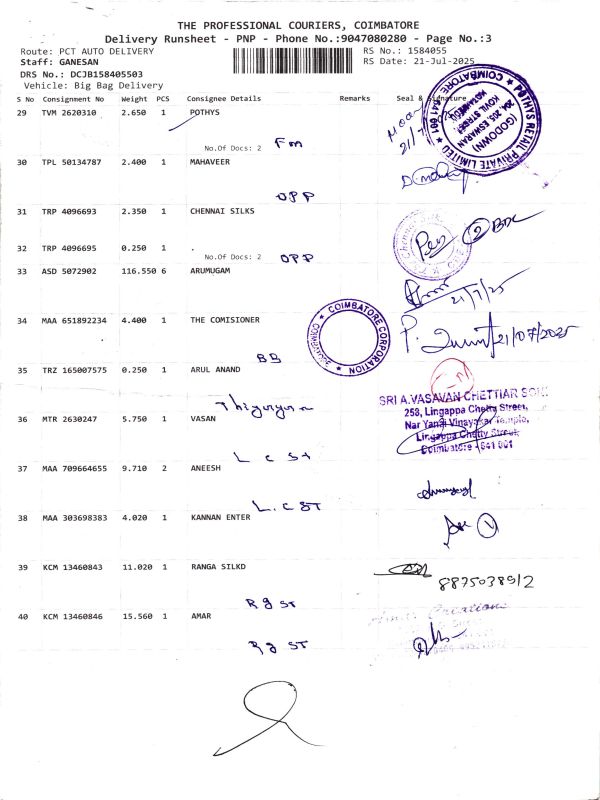 THE PROFESSIONAL COURIERS, COIMBATORE
Delivery Runsheet - PNP - Phone No.:9047080280 - Page No.:3
Route: PCT AUTO DELIVERY
RS No.: 1584055
Staff: GANESAN
RS Date: 21-Jul-2025
DRS No.: DCJB158405503
Vehicle: Big Bag Delivery
S No Consignment No Weight PCS Consignee Details Remarks Seal & Signature
29 TVM 2620310 2.650 1 POTHYS
No.Of Docs: 2
POTHYS RETAIL PRIVATE LIMITED
COIMBATORE 641 001
(GODOWN)
30 TPL 50134787 2.400 1 MAHAVEER
OPP
31 TRP 4096693 2.350 1 CHENNAI SILKS
32 TRP 4096695 0.250 1 .
No.Of Docs: 2 OPP
33 ASD 5072902 116.550 6 ARUMUGAM
21/7/25
34 MAA 651892234 4.400 1 THE COMISIONER
COIMBATORE CORPORATION
21/07/2025
BB
35 TRZ 165007575 0.250 1 ARUL ANAND
SRI A.VASAVAN CHETTIAR
258, Lingappa Chetty Street,
Nar Yanai Vinayakar Temple,
Lingappa Chetty Street,
Coimbatore - 641 001
36 MTR 2630247 5.750 1 VASAN
L C St
37 MAA 709664655 9.710 2 ANEESH
L.C ST
38 MAA 303698383 4.020 1 KANNAN ENTER
39 KCM 13460843 11.020 1 RANGA SILKD
8875038912
R g ST
40 KCM 13460846 15.560 1 AMAR
Creations
R g ST